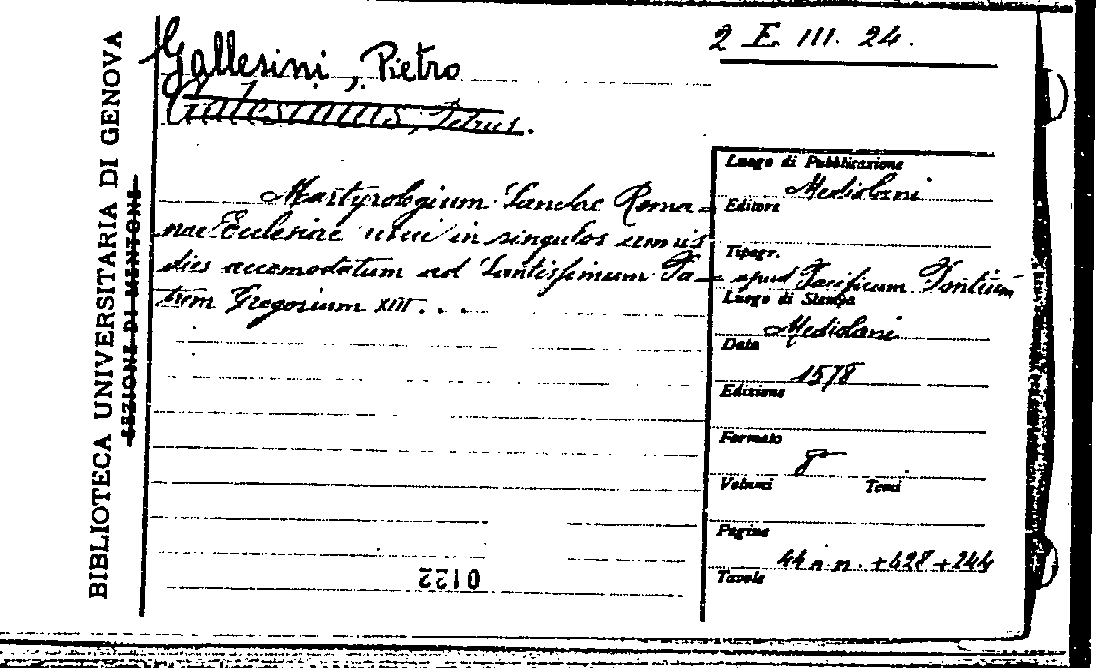 BIBLIOTECA UNIVERSITARIA DI GENOVA
SEZIONE DI MENTONE
Gallesini, Pietro
Galesinius, Petrus.
2 E. III. 24.
Martyrologium Sanctae Roma-
nae Ecclesiae usui in singulos annis
dies accomodatum ad Santissimum Pa-
trem Gregorium XIII . . .
Luogo di Pubblicazione
Mediolani
Editore
Tipogr.
apud Pacificum Pontium
Luogo di Stampa
Mediolani
Data
1578
Edizione
Formato
8
Volumi Tomi
Pagine
44 n. n. + 628 + 244
Tavole
0122